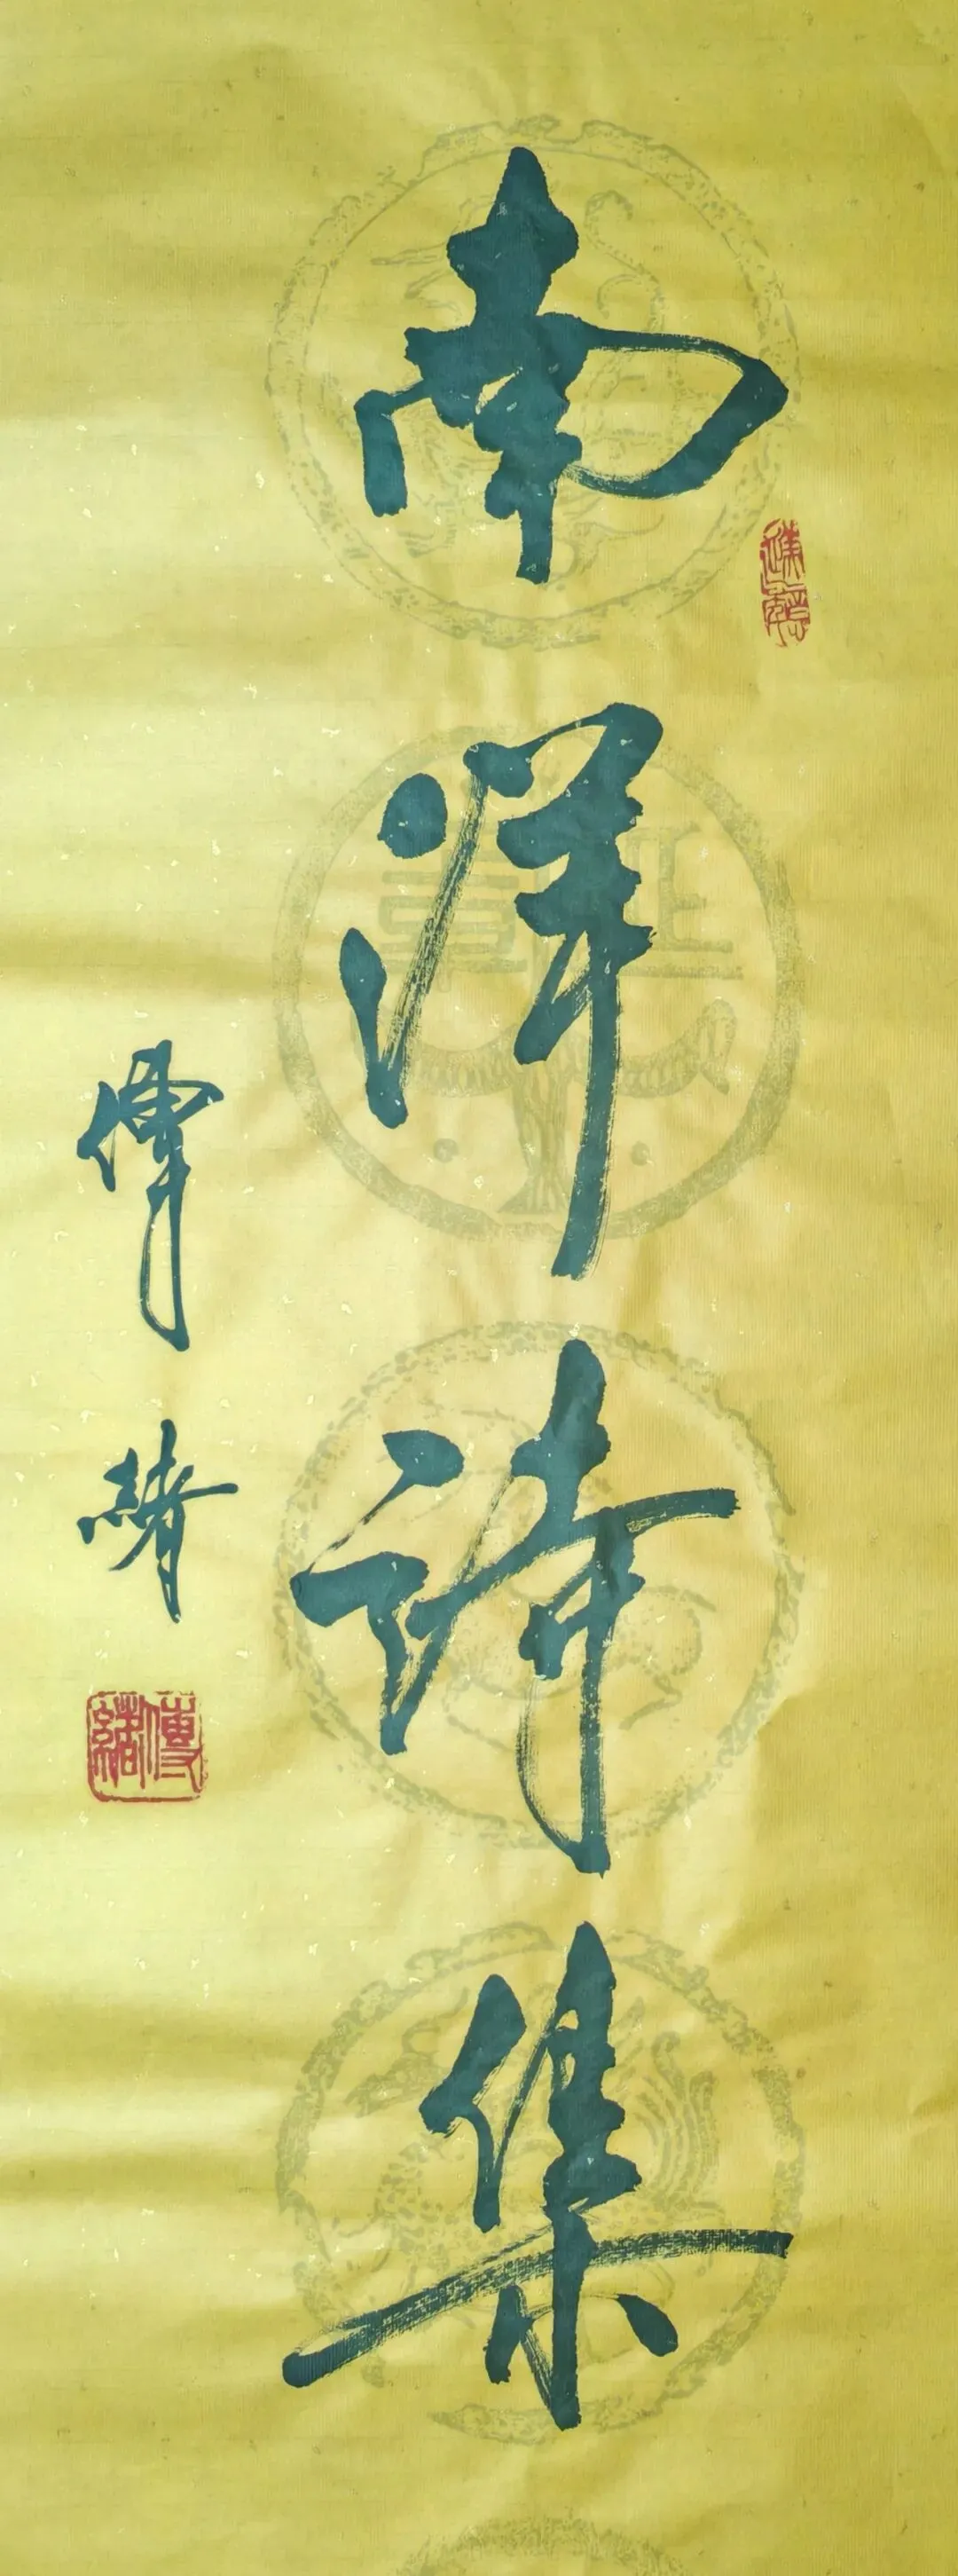 南洋诗集
傅绪
傅绪